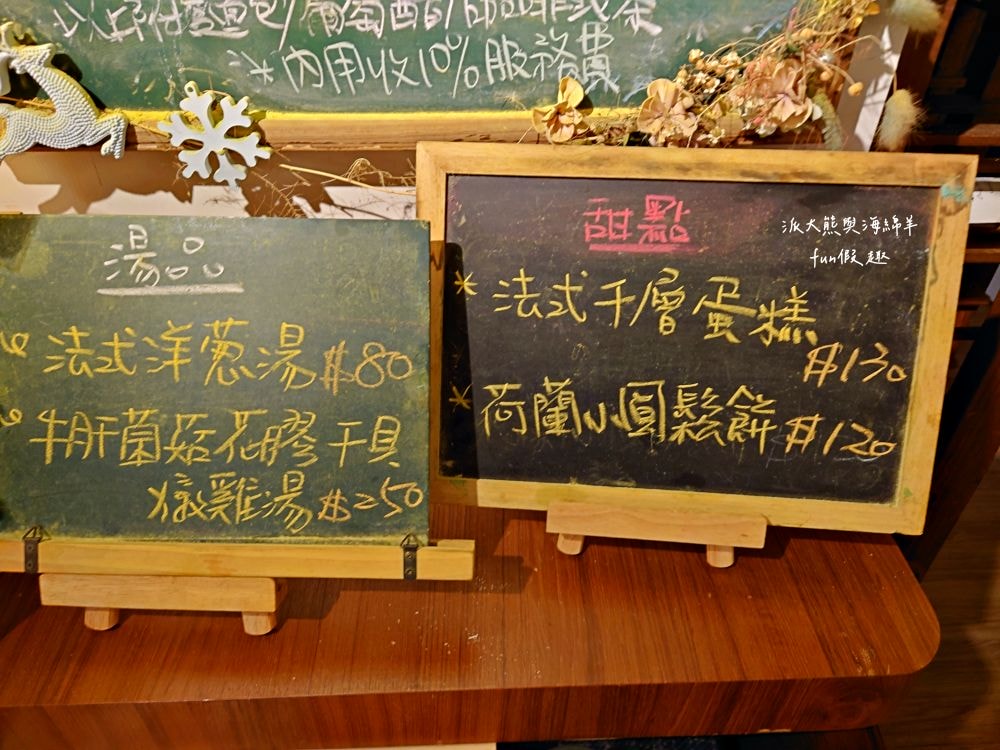 以上附麵包/葡萄酯/甜品/咖啡或茶
*內用收10%服務費
湯品
法式洋蔥湯$80
牛肝菌菇花膠干貝
燉雞湯$250
甜點
派大熊與海綿羊
fun假趣
*法式千層蛋糕
$130
*荷蘭小圓鬆餅$120